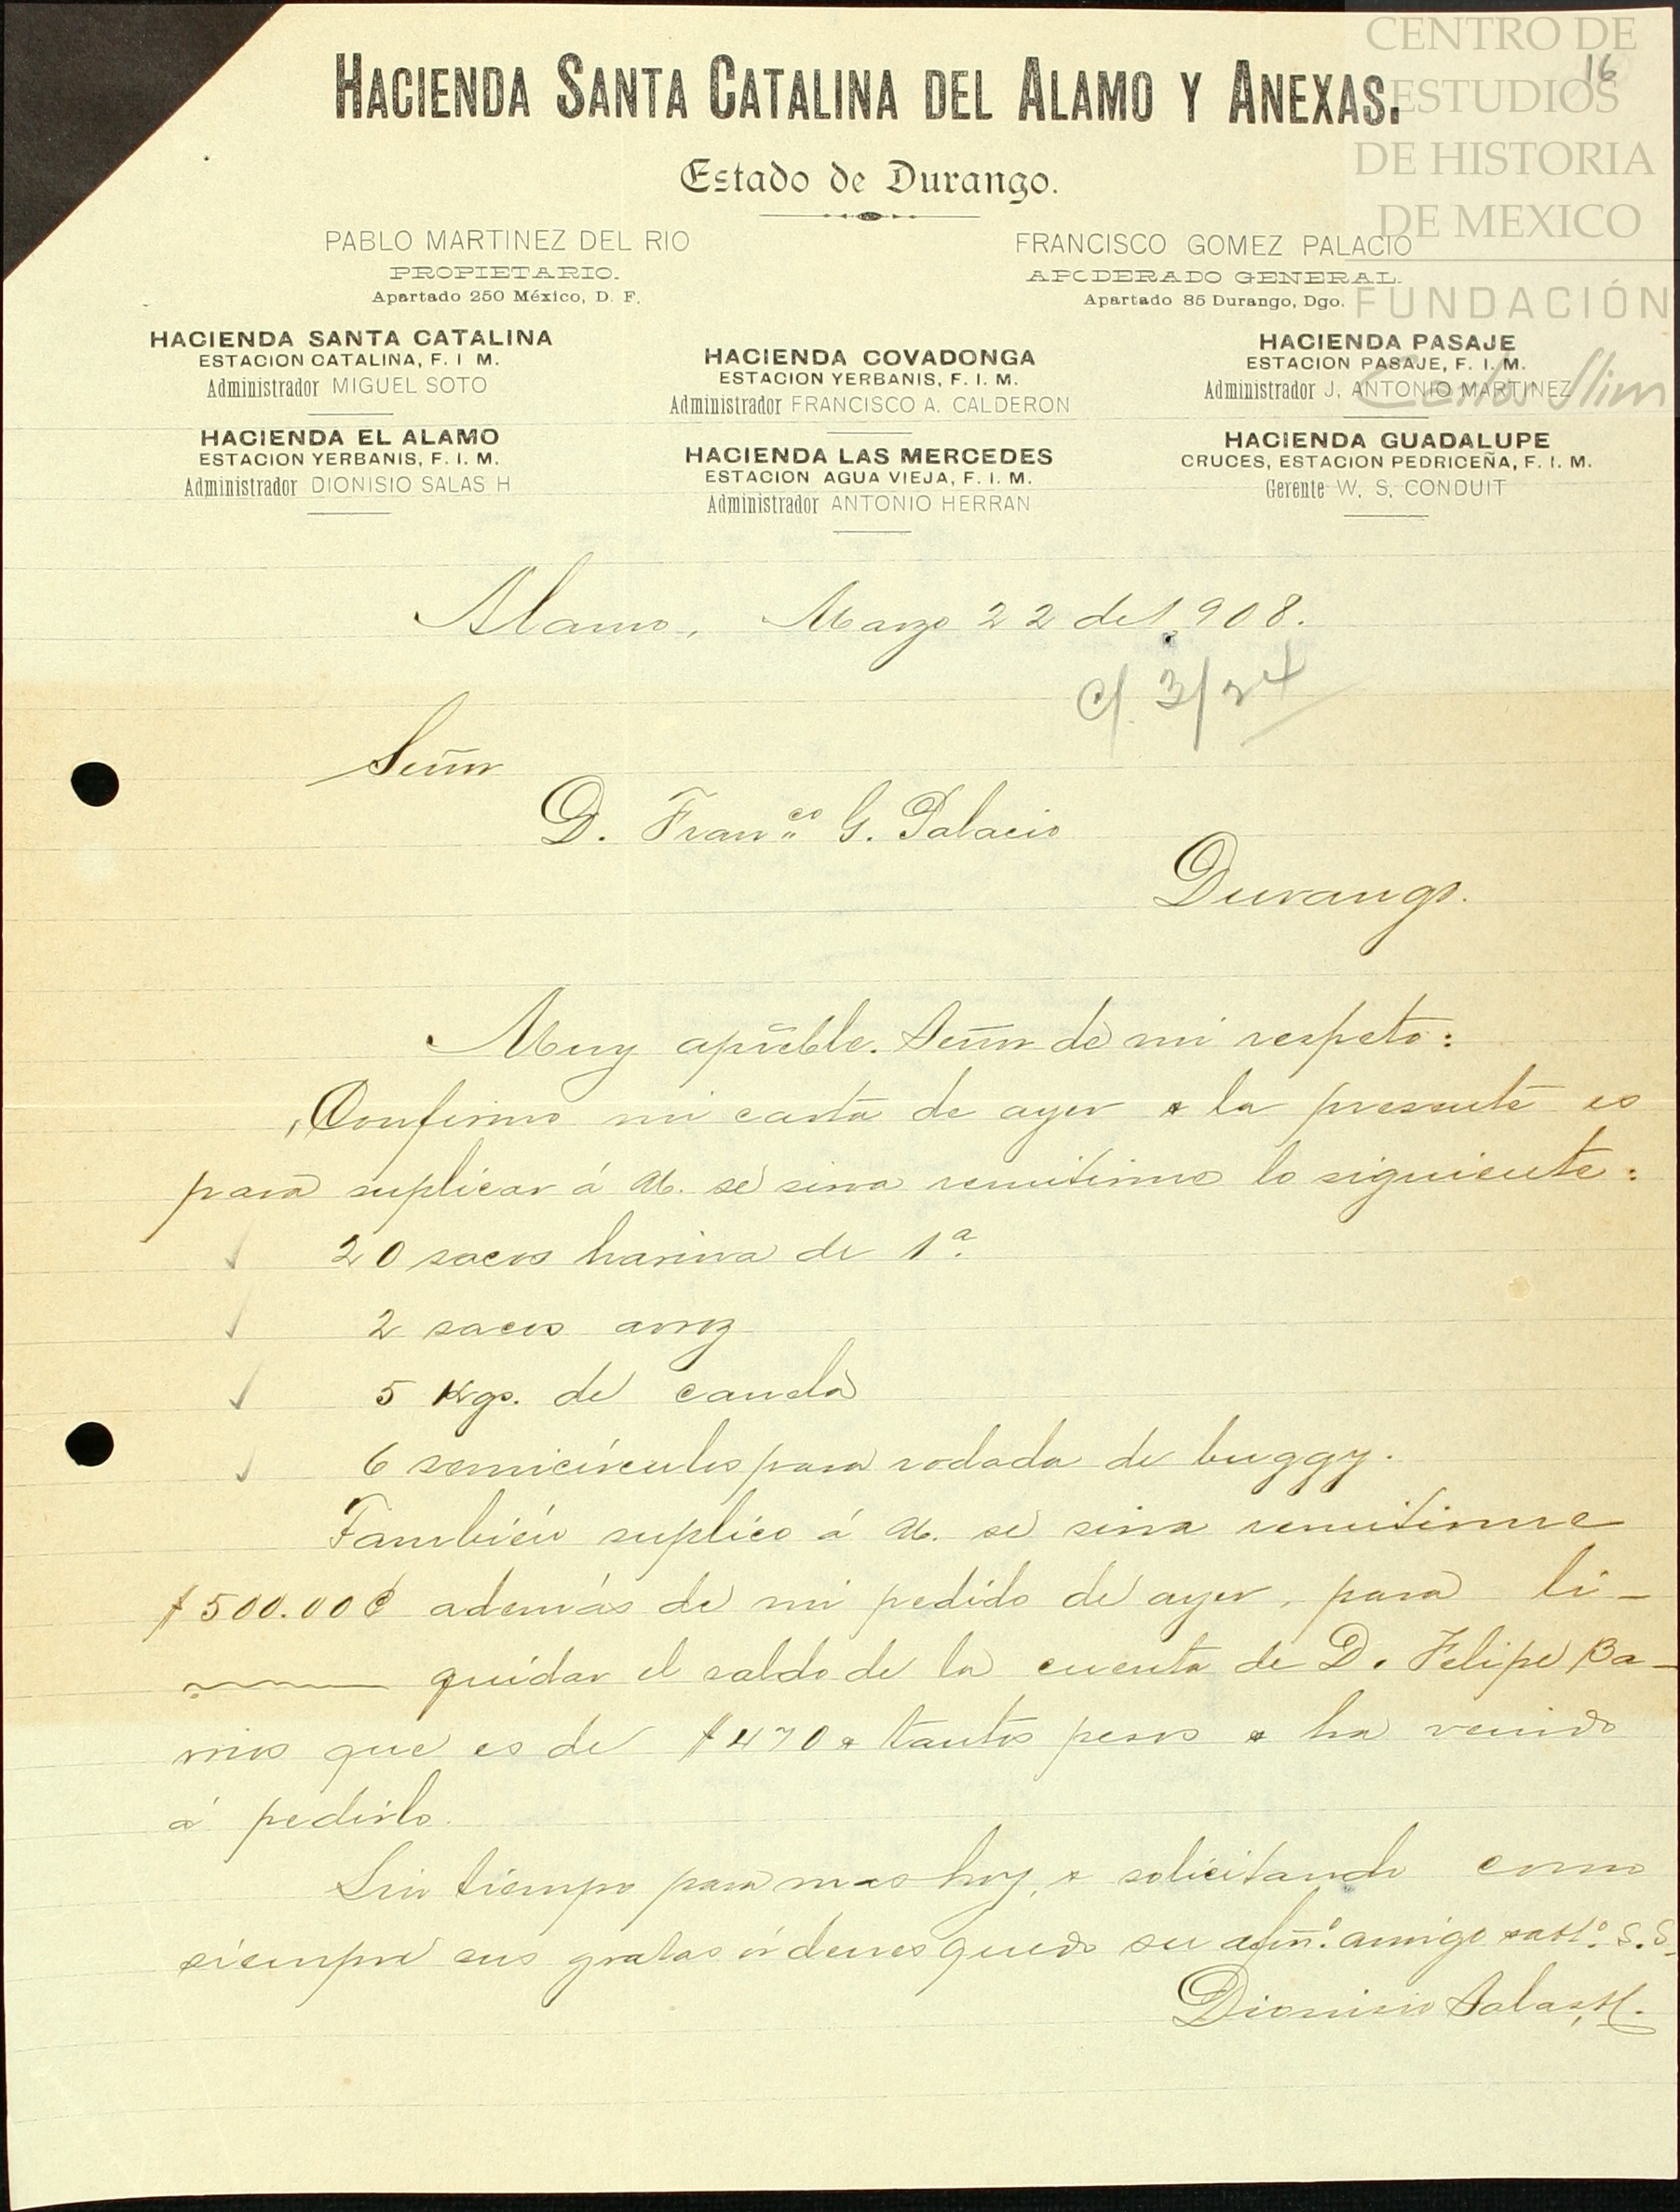 CENTRO DE
ESTUDIOS
DE HISTORIA
DE MEXICO
FUNDACIÓN
Carlos Slim
16
HACIENDA SANTA CATALINA DEL ALAMO Y ANEXAS.
Estado de Durango.
PABLO MARTINEZ DEL RIO
PROPIETARIO.
Apartado 250 México, D. F.
FRANCISCO GOMEZ PALACIO
APODERADO GENERAL
Apartado 85 Durango, Dgo.
HACIENDA SANTA CATALINA
ESTACION CATALINA, F. I M.
Administrador MIGUEL SOTO
HACIENDA EL ALAMO
ESTACION YERBANIS, F. I. M.
Administrador DIONISIO SALAS H
HACIENDA COVADONGA
ESTACION YERBANIS, F. I. M.
Administrador FRANCISCO A. CALDERON
HACIENDA LAS MERCEDES
ESTACION AGUA VIEJA, F. I. M.
Administrador ANTONIO HERRAN
HACIENDA PASAJE
ESTACION PASAJE, F. I. M.
Administrador J. ANTONIO MARTINEZ
HACIENDA GUADALUPE
CRUCES, ESTACION PEDRICEÑA, F. I. M.
Gerente W. S. CONDUIT
Alamo, Marzo 22 de 1908.
c/ 3/24
Señor
D. Franco G. Palacio
Durango.
Muy apreble. Señor de mi respeto:
Confirmo mi carta de ayer & la presente es
para suplicar á U. se sirva remitirme lo siguiente:
20 sacos harina de 1a.
2 sacos arroz
5 Kgs. de canela
6 semicírculos para rodada de buggy.
También suplico á U. se sirva remitirme
$500.00 ¢ además de mi pedido de ayer, para li-
quidar el saldo de la cuenta de D. Felipe Ba-
rrios que es de $470 & tantos pesos & ha venido
á pedirlo.
Sin tiempo para mas hoy, & solicitando como
siempre sus gratas órdenes quedo su afmo. amigo atto. S.S.
Dionisio Salas H.